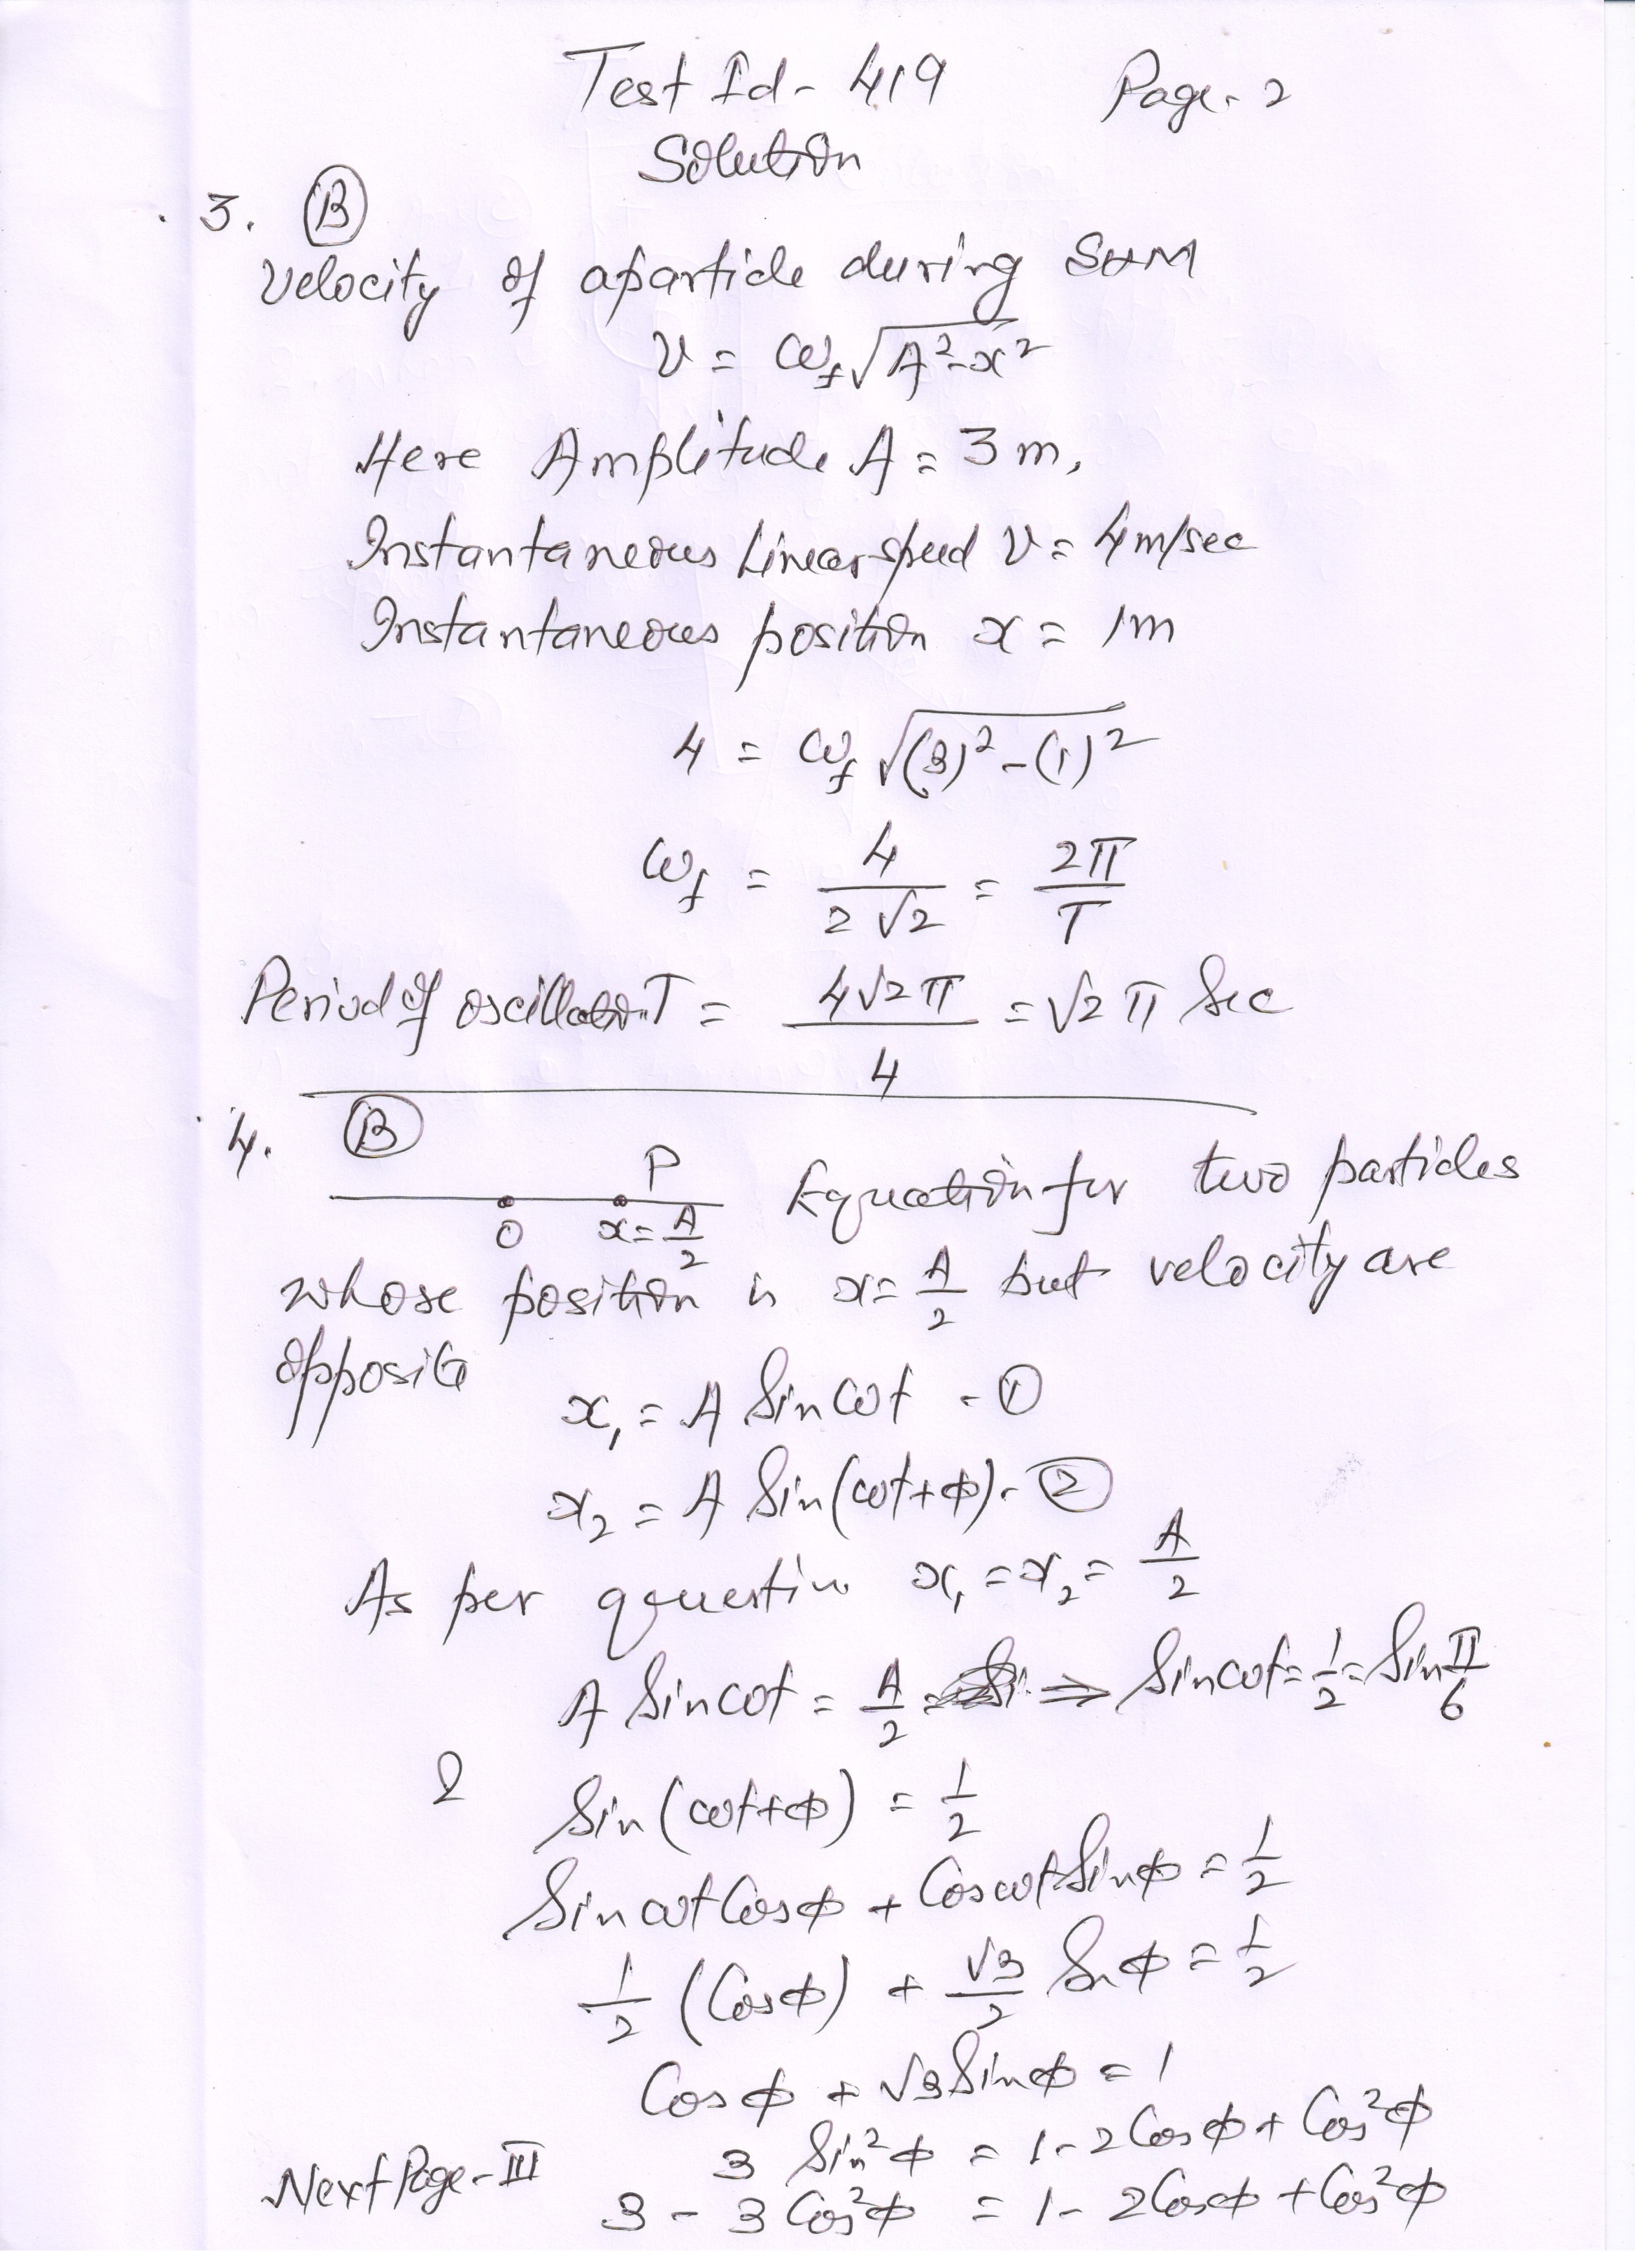 Test Id - 419 Page - 2
Solution
3. (B)
Velocity of a particle during SHM
v = ω_f √(A² - x²)
Here Amplitude A = 3 m,
Instantaneous Linear speed v = 4 m/sec
Instantaneous position x = 1m
4 = ω_f √((3)² - (1)²)
ω_f = 4 / 2√2 = 2π / T
Period of oscillation T = 4√2 π / 4 = √2 π Sec
4. (B)
P
O x = A/2
Equation for two particles
whose position is x = A/2 but velocity are
opposite
x₁ = A Sin ωt - ①
x₂ = A Sin(ωt + φ) - ②
As per question x₁ = x₂ = A/2
A Sin ωt = A/2 ⇒ Sin ωt = 1/2 = Sin π/6
& Sin(ωt + φ) = 1/2
Sin ωt Cos φ + Cos ωt Sin φ = 1/2
1/2 (Cos φ) + √3/2 Sin φ = 1/2
Cos φ + √3 Sin φ = 1
3 Sin² φ = 1 - 2 Cos φ + Cos² φ
Next Page - III 3 - 3 Cos² φ = 1 - 2 Cos φ + Cos² φ